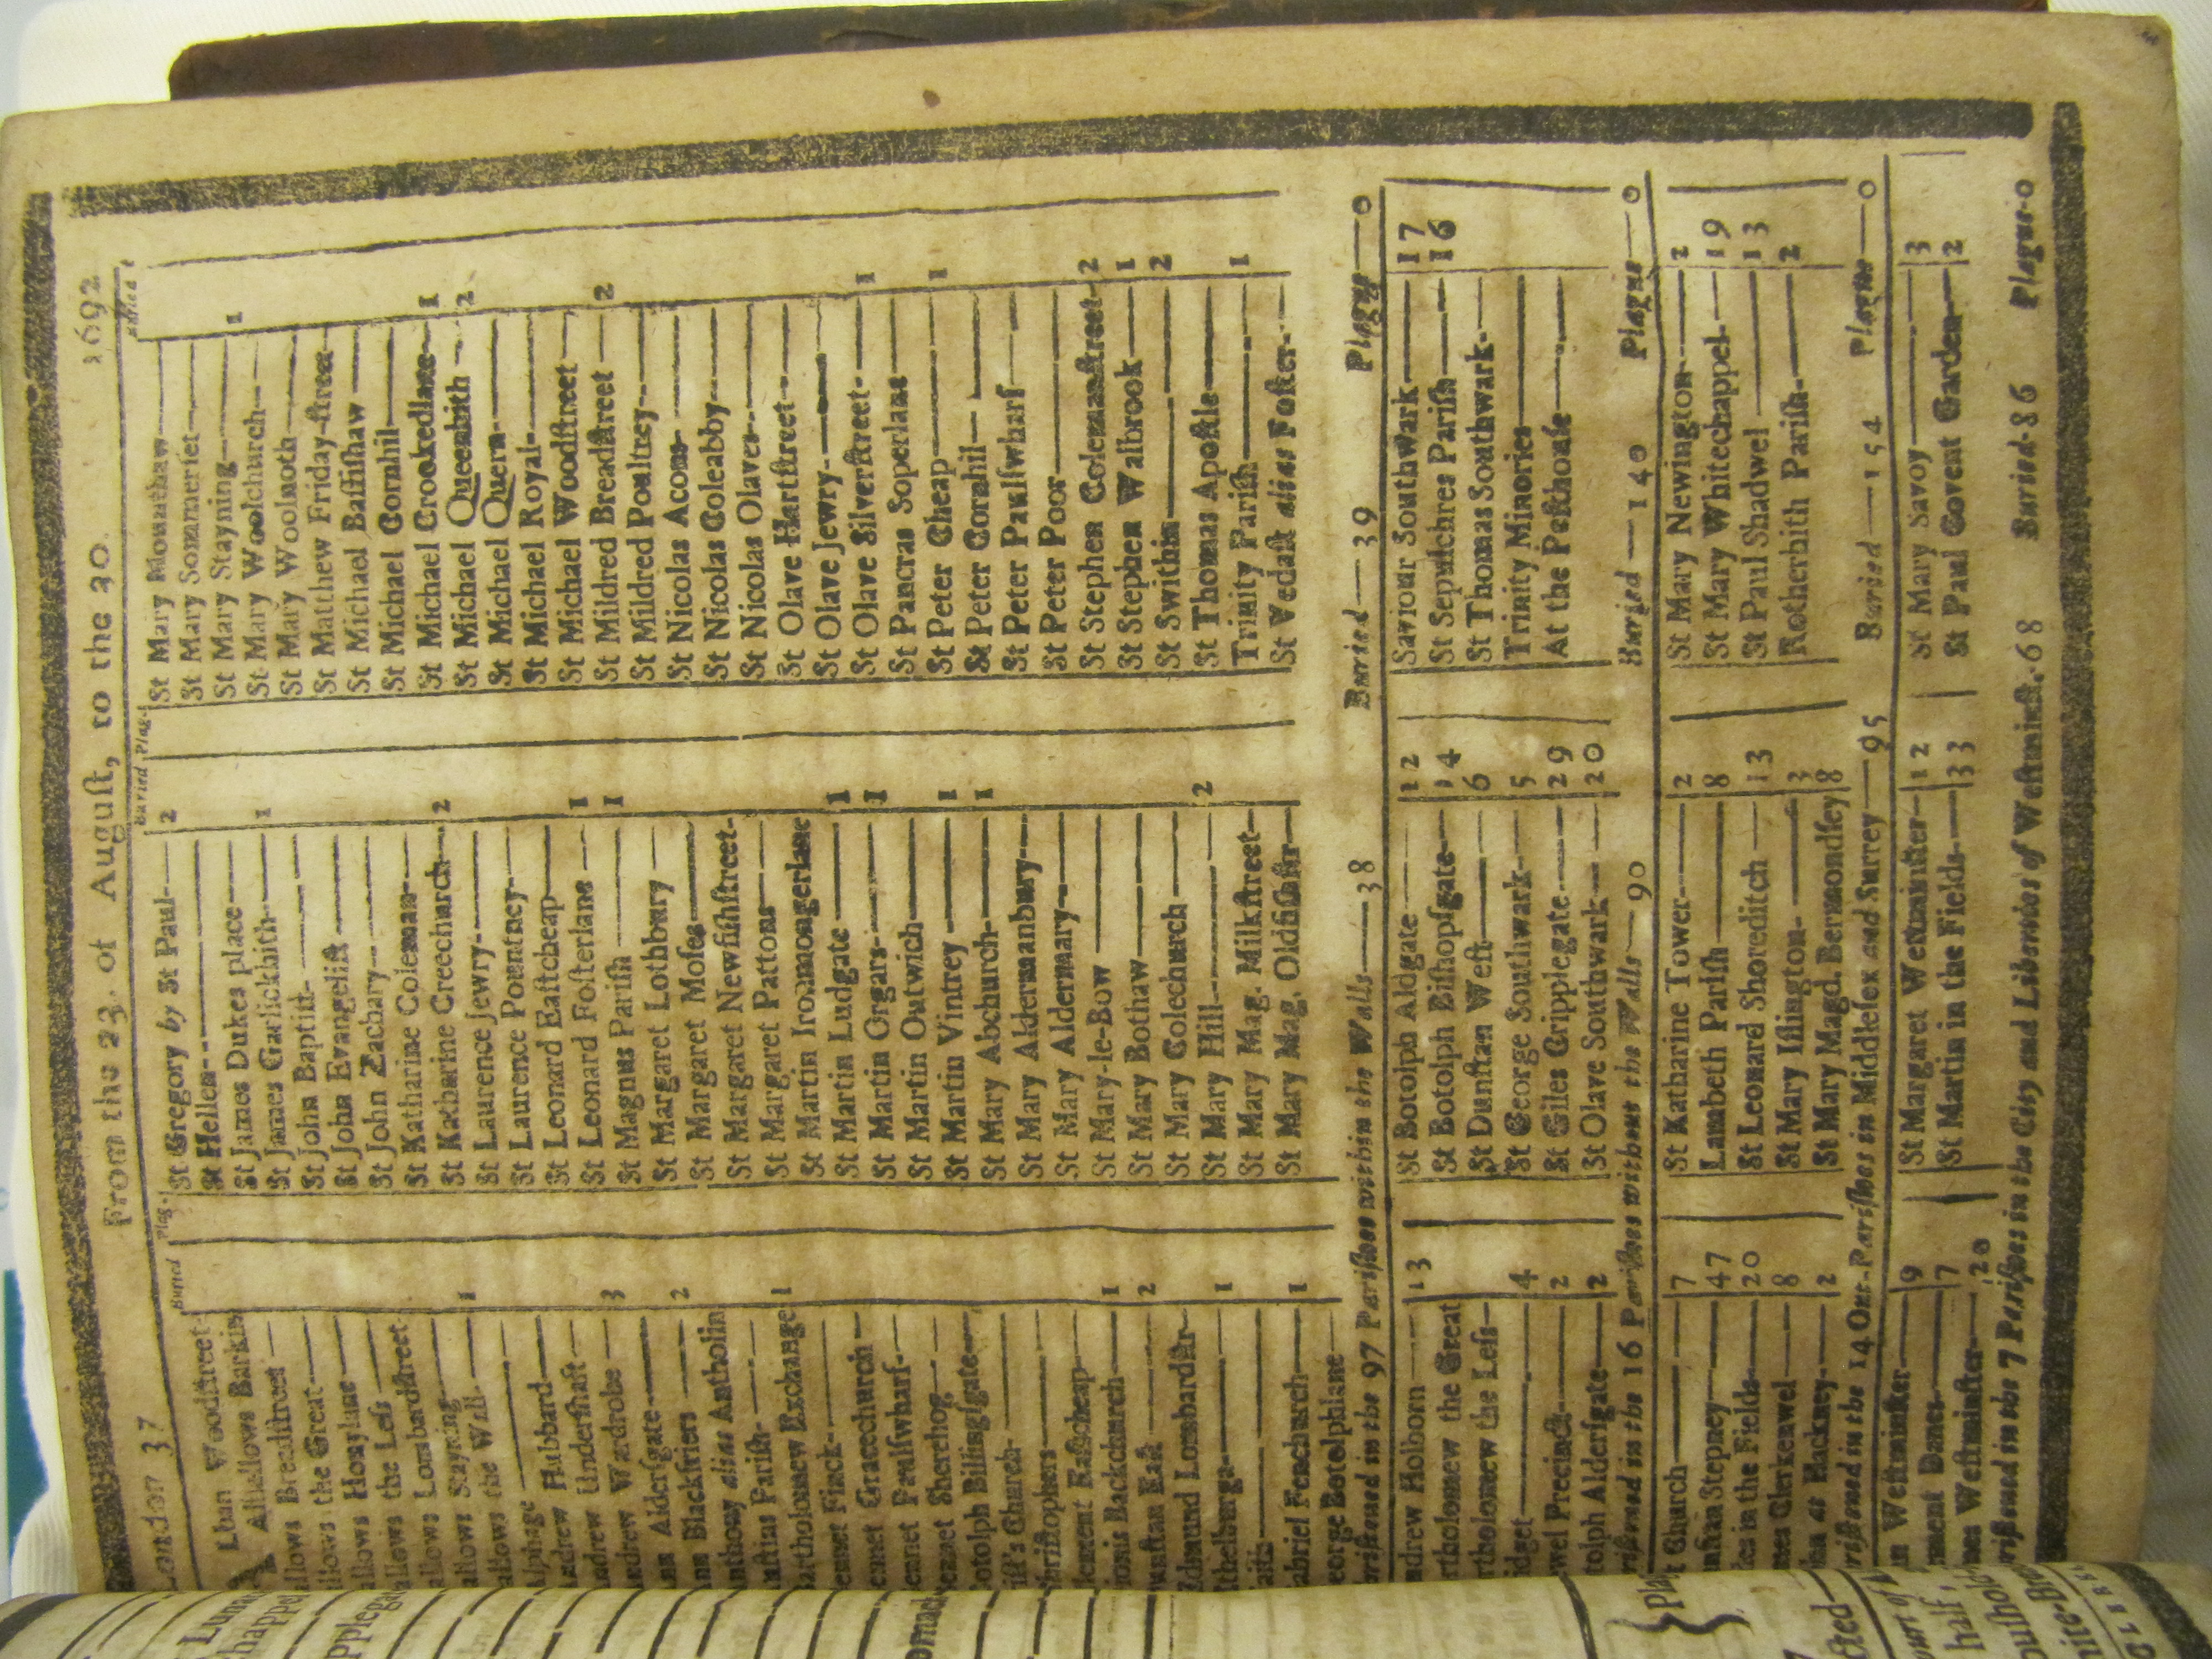 London 37 From the 23. of August, to the 30. 1692
Buried Plag.
Alban Woodſtreet
Alhallows Barkin
allows Breadſtreet
allows the Great
allows Honylane
allows the Leſs
allows Lombardſtreet
allows Stayning 1
allows the Wall
Alphage
Andrew Hubbard
Andrew Underſhaft
Andrew Wardrobe 3
Ann Alderſgate
Ann Blackfriers 2
Anthony alias Antholin
Parish
Bartholomew Exchange 1
ennet Finck
ennet Gracechurch
ennet Paulſwharf
ennet Sherehog
otolph Billingſgate
Church
hriſtophers
lement Eaſtcheap
ionis Backchurch 1
unſtan Eaſt 2
Edmund Lombardſtr
thelburga 1
aith
abriel Fenchurch 1
eorge Botolphlane
Buried Plag.
St Gregory by St Paul 2
St Hellen
St James Dukes place
St James Garlickhith 1
St John Baptiſt
St John Evangeliſt
St John Zachary
St Katharine Coleman
St Katharine Creechurch 2
St Laurence Jewry
St Laurence Pountney
St Leonard Eaſtcheap
St Leonard Foſterlane 1
St Magnus Pariſh 1
St Margaret Lothbury
St Margaret Moſes
St Margaret Newfiſhſtreet
St Margaret Pattons
St Martin Ironmongerlane
St Martin Ludgate 1
St Martin Orgars 1
St Martin Outwich
St Martin Vintrey 1
St Mary Abchurch 1
St Mary Aldermanbury
St Mary Aldermary
St Mary-le-Bow
St Mary Bothaw
St Mary Colechurch
St Mary Hill 2
St Mary Mag. Milkſtreet
St Mary Mag. Oldfiſhſtr
Buried
St Mary Mounthaw
St Mary Sommerſet
St Mary Stayning 1
St Mary Woolchurch
St Mary Woolnoth
St Matthew Friday-ſtreet
St Michael Baſſiſhaw
St Michael Cornhil
St Michael Crookedlane 1
St Michael Queenhith 2
St Michael Quern
St Michael Royal
St Michael Woodſtreet
St Mildred Breadſtreet 2
St Mildred Poultney
St Nicolas Acons
St Nicolas Coleabby
St Nicolas Olaves
St Olave Hartſtreet
St Olave Jewry
St Olave Silverſtreet 1
St Pancras Soperlane
St Peter Cheap 1
St Peter Cornhil
St Peter Paulſwharf
St Peter Poor
St Stephen Colemanſtreet 2
St Stephen Walbrook 1
St Swithin 2
St Thomas Apoſtle
Trinity Pariſh 1
St Vedaſt alias Foſter
riſtned in the 97 Pariſhes within the Walls—38 Buried—39 Plague—0
drew Holborn 13
rtholomew the Great
rtholomew the Leſs
idget 4
ewel Precinct 2
tolph Alderſgate 2
St Botolph Aldgate 12
St Botolph Biſhopſgate 14
St Dunſtan Weſt 6
St George Southwark 5
St Giles Cripplegate 29
St Olave Southwark 20
Saviour Southwark 17
St Sepulchres Pariſh 16
St Thomas Southwark
Trinity Minories
At the Peſthouſe
riſtned in the 16 Pariſhes without the Walls—90 Buried—140 Plague—0
t Church 7
nſtan Stepney 47
les in the Fields 20
mes Clerkenwel 8
hn at Hackney 2
St Katharine Tower 2
Lambeth Pariſh 8
St Leonard Shoreditch 13
St Mary Iſlington 3
St Mary Magd. Bermondſey 8
St Mary Newington 2
St Mary Whitechappel 19
St Paul Shadwel 13
Rotherhith Pariſh 2
riſtned in the 14 Out-Pariſhes in Middleſex and Surrey—95 Buried—154 Plague—0
n Weſtminſter 9
ment Danes 7
mes Weſtminſter 20
St Margaret Weſtminſter 12
St Martin in the Fields 33
St Mary Savoy 3
St Paul Covent Garden 2
riſtned in the 7 Pariſhes in the City and Liberties of Weſtminſt. 68 Buried-86 Plague-0